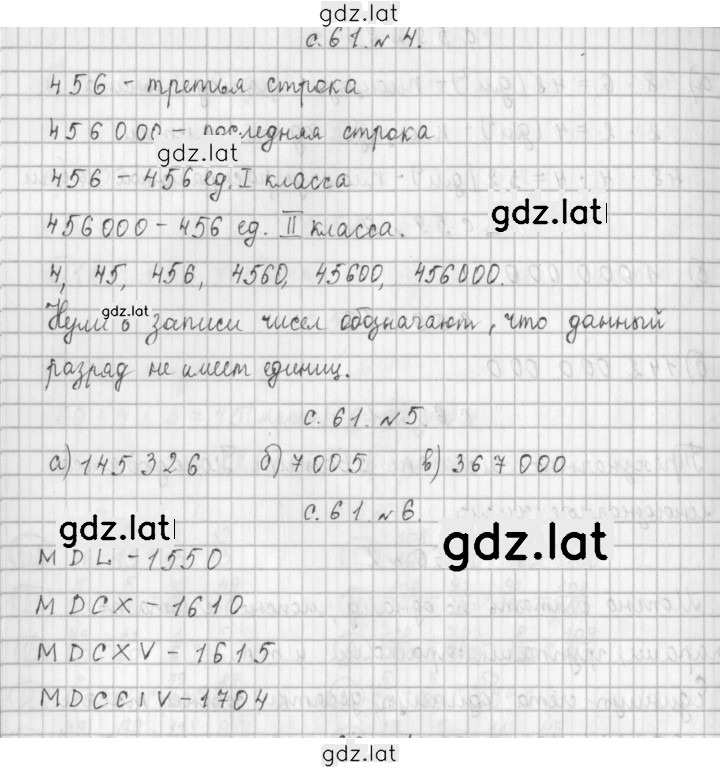 gdz.lat
с. 61. № 4.
456 – третья строка
456 000 – последняя строка
gdz.lat
456 – 456 ед. I класса
gdz.lat
456000 – 456 ед. II класса.
4, 45, 456, 4560, 45600, 456000.
gdz.lat
Нули в записи чисел обозначают, что данный
разряд не имеет единиц.
с. 61. № 5.
а) 145326 б) 7005 в) 367000
с. 61. № 6.
gdz.lat
gdz.lat
MDL – 1550
MDCX – 1610
MDCXV – 1615
MDCCIV – 1704
gdz.lat